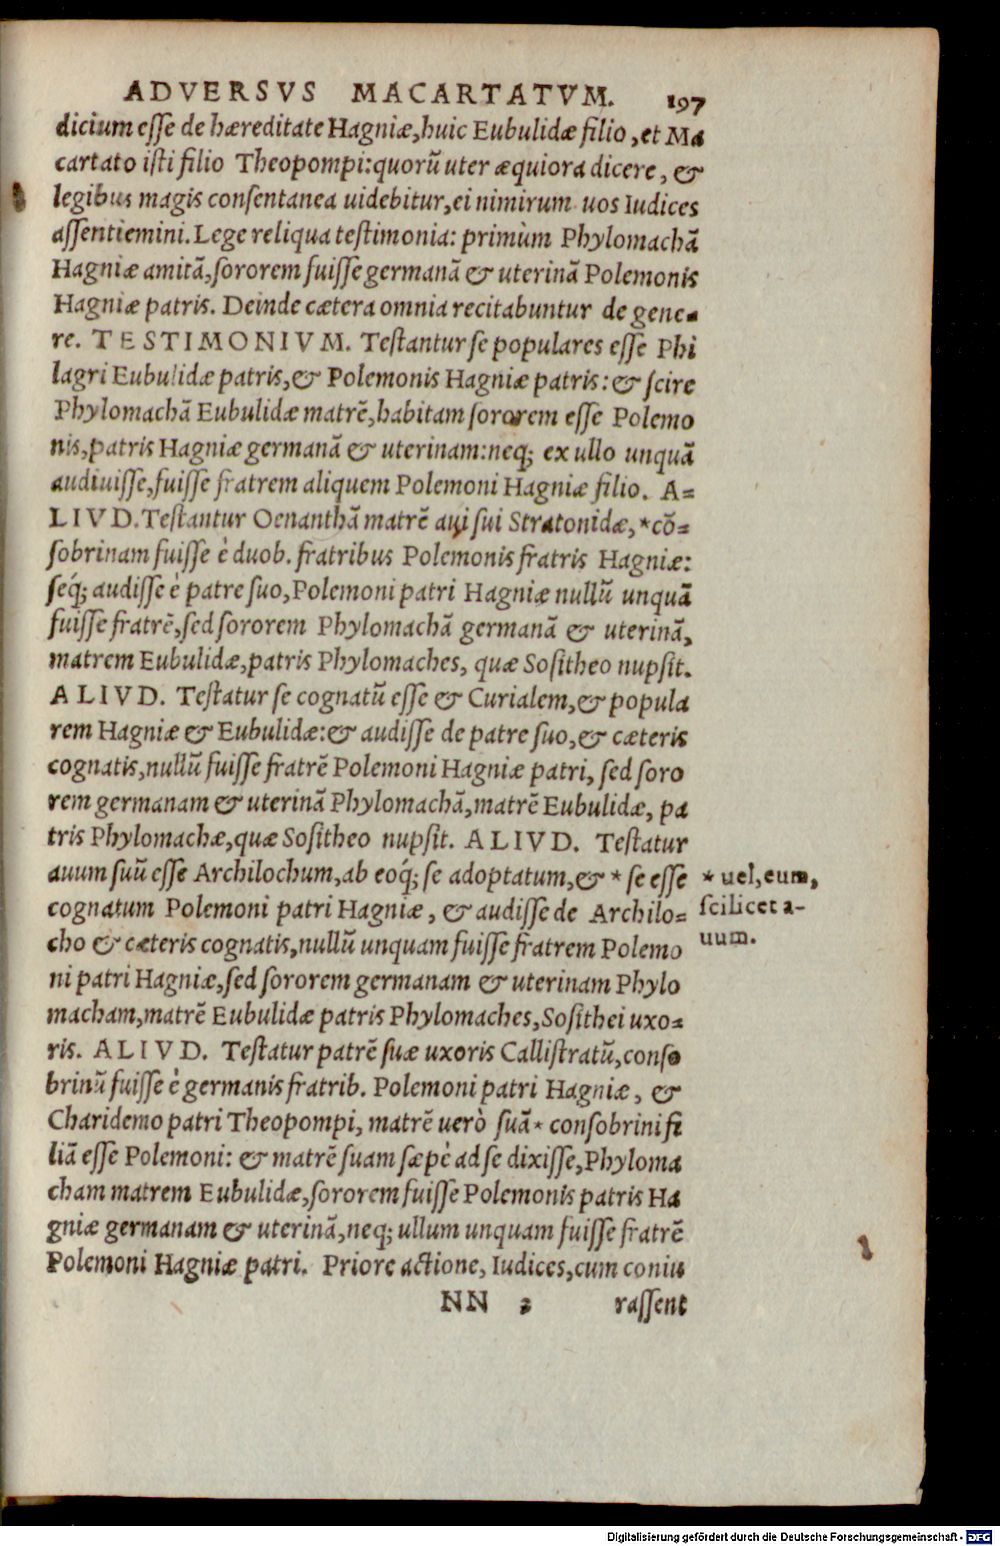 ADVERSVS MACARTATVM. 197
dicium eſſe de hæreditate Hagniæ, huic Eubulidæ filio, et Ma
cartato iſti filio Theopompi: quorũ uter æquiora dicere, &
legibus magis conſentanea uidebitur, ei nimirum uos Iudices
aſſentiemini. Lege reliqua teſtimonia: primùm Phylomachã
Hagniæ amitã, ſororem fuiſſe germanã & uterinã Polemonis
Hagniæ patris. Deinde cætera omnia recitabuntur de gene-
re. TESTIMONIVM. Teſtantur ſe populares eſſe Phi
lagri Eubulidæ patris, & Polemonis Hagniæ patris: & ſcire
Phylomachã Eubulidæ matrẽ, habitam ſororem eſſe Polemo
nis, patris Hagniæ germanã & uterinam: neq; ex ullo unquã
audiuiſſe, fuiſſe fratrem aliquem Polemoni Hagniæ filio. A-
LIVD. Teſtantur Oenanthã matrẽ aui ſui Stratonidæ, *cõ-
ſobrinam fuiſſe è duob. fratribus Polemonis fratris Hagniæ:
ſeq́; audiſſe è patre ſuo, Polemoni patri Hagniæ nullũ unquã
fuiſſe fratrẽ, ſed ſororem Phylomachã germanã & uterinã,
matrem Eubulidæ, patris Phylomaches, quæ Soſitheo nupſit.
ALIVD. Teſtatur ſe cognatũ eſſe & Curialem, & popula
rem Hagniæ & Eubulidæ: & audiſſe de patre ſuo, & cæteris
cognatis, nullũ fuiſſe fratrẽ Polemoni Hagniæ patri, ſed ſoro
rem germanam & uterinã Phylomachã, matrẽ Eubulidæ, pa
tris Phylomachæ, quæ Soſitheo nupſit. ALIVD. Teſtatur
auum ſuũ eſſe Archilochum, ab eoq́; ſe adoptatum, & * ſe eſſe
cognatum Polemoni patri Hagniæ, & audiſſe de Archilo-
cho & cæteris cognatis, nullũ unquam fuiſſe fratrem Polemo
ni patri Hagniæ, ſed ſororem germanam & uterinam Phylo
macham, matrẽ Eubulidæ patris Phylomaches, Soſithei uxo-
ris. ALIVD. Teſtatur patrẽ ſuæ uxoris Calliſtratũ, conſo
brinũ fuiſſe è germanis fratrib. Polemoni patri Hagniæ, &
Charidemo patri Theopompi, matrẽ uerò ſuã* conſobrini fi
liã eſſe Polemoni: & matrẽ ſuam ſæpè ad ſe dixiſſe, Phyloma
cham matrem Eubulidæ, ſororem fuiſſe Polemonis patris Ha
gniæ germanam & uterinã, neq; ullum unquam fuiſſe fratrẽ
Polemoni Hagniæ patri. Priore actione, Iudices, cum coniu
NN 2 raſſent
* uel, eum,
ſcilicet a-
uum.
Digitalisierung gefördert durch die Deutsche Forschungsgemeinschaft - DFG